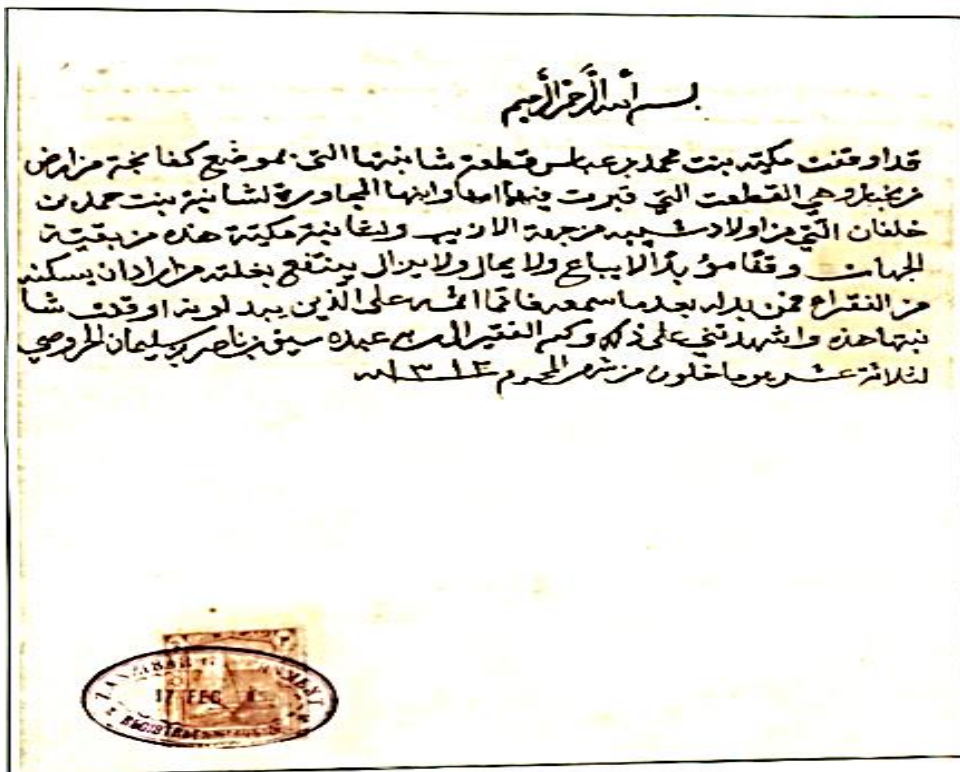 بسم الله الرحمن الرحيم
قد اوقفت مكيه بنت محمد بن عباس قطعة شانبتها التي بموضع كفابجة من ارض
زنجبار وهي القطعت التي قبرت فيها امها وابنها المجاورة لشانبة بنت حمد بن
خلفان التي من اولاد من جهة الازيب ولغانبة مكية هذه من بقية
الجهات وقفًا مؤبدًا لا يباع ولا يحال ولا يزال ينتفع بغلته من اراد ان يسكنه
من الفقراء فمن بدله بعد ما سمعه فانما اثمه على الذين يبدلونه اوقفت شا
نبتها هذه واشهدتني على ذلك وكتبه الفقير لله عبده سيف بن ناصر بن سليمان الخروصي
لثلاثة عشر يوما خلون من شهر المحرم ١٣١٤ سنه
ZANZIBAR GOVERNMENT
17 FEC